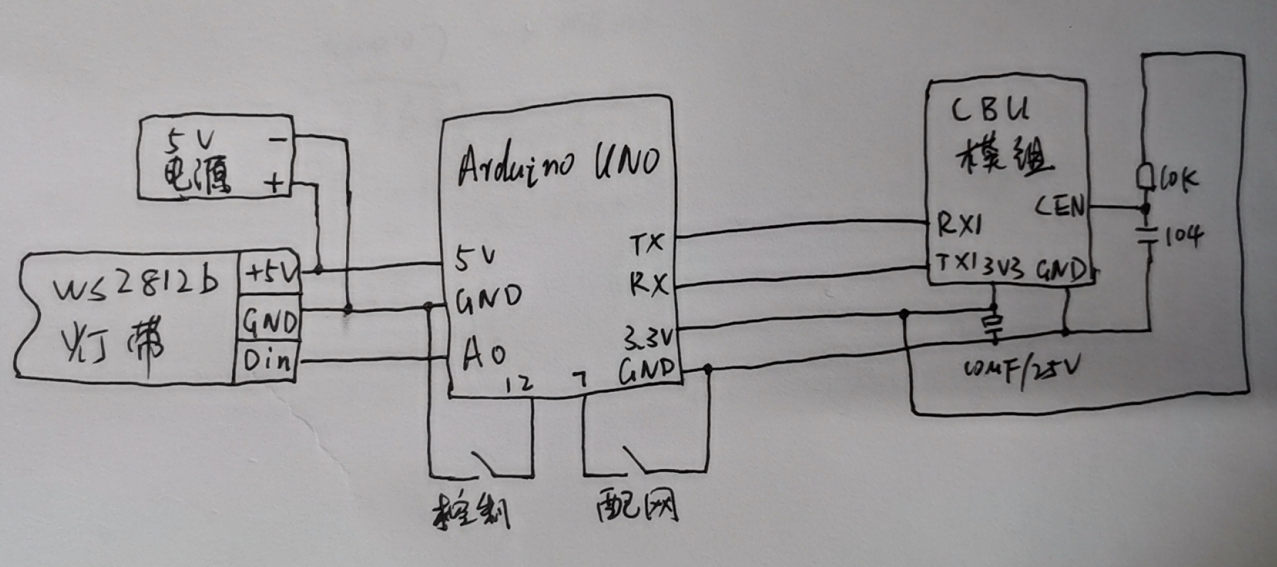 5V
电源
-
+
WS2812b
灯带
+5V
GND
Din
Arduino UNO
5V
GND
A0
12
7
TX
RX
3.3V
GND
控制
配网
CBU
模组
CEN
RX1
TX1
3V3
GND
10K
104
10MF/25V